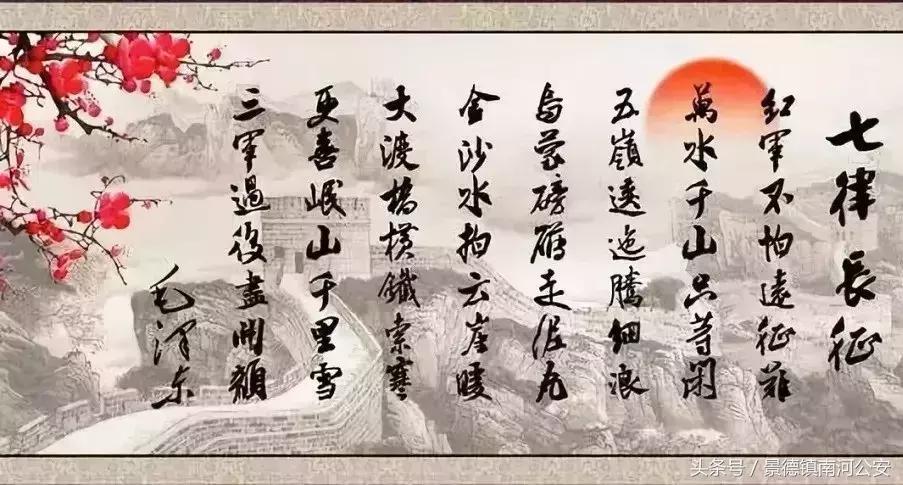 七律長征
红軍不怕遠征難
萬水千山只等闲
五嶺逶迤騰細浪
烏蒙磅礴走泥丸
金沙水拍云崖暖
大渡橋橫鐵索寒
更喜岷山千里雪
三軍過後盡開顏
毛澤東
头条号 / 景德镇南河公安